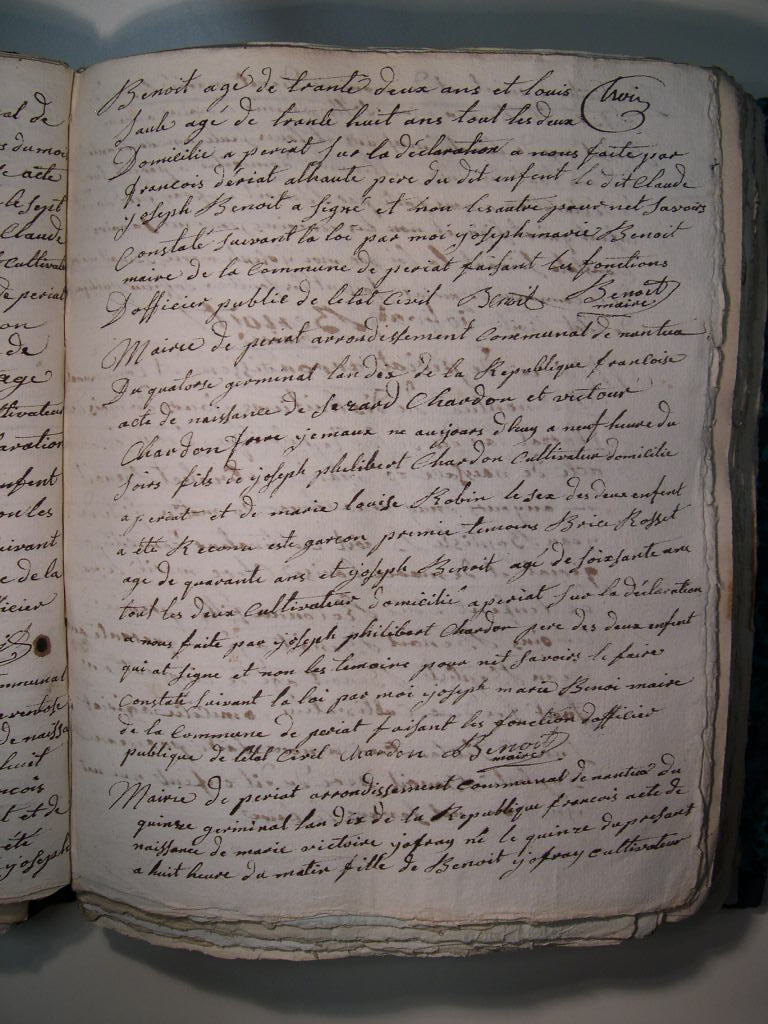 al de
s du moi
e acte
le sept
Claude
Cultivate
de periat
on
de
age
ltivateur
laration
enfent
on les
uivant
e de la
ficier
ommunal
ventose
de naissa
huit
ncois
t et de
ete
yoseph
troi
Benoit agé de trante deux ans et louis
agé de trante huit ans tout les deux
Domicilie a periat sur la déclaration a nous faite par
francois dériat pere du dit enfent le dit Claude
yoseph Benoit a signé et non les autre pour net savoirs
Constaté suivant la loi par moi yoseph marie Benoit
maire de la Commune de periat faisant les fonctions
Dofficier publie de letat Civil Benoit Benoit
maire
Mairee de periat arrondissement Communal de nantua
Du quatorse germinal lan dix de la Republique francoise
acte de naissance de Chardon et victour
Chardon frere yemaux ne aujours dhuy a neuf heure du
soirs fils de yoseph philibert Chardon Cultivateur domicilie
a periat et de marie louise Robin le sex des deux enfent
a été Reconu este garçon premie temoins Brice Rosset
age de quarante ans et yoseph Benoit agé de soixsante ans
tout les deux Cultivateur domicilié a periat sur la déclaration
a nous faite par yoseph philibert Chardon pere des deux enfent
qui at signe et non les temoire pour net savoirs le faire
Constate suivant la loi par moi yoseph marie Benoi maire
de la Commune de periat faisant les fonction dofficier
publique de letat Civil Chardon Benoit
maire
Mairie de periat arrondissement Communal de nantua du
quinze germinal lan dix de la Republique francois acte de
naissance de marie victoire jofray né le quinze du presant
a huit heure du matin fille de Benoit jofray cultivateur